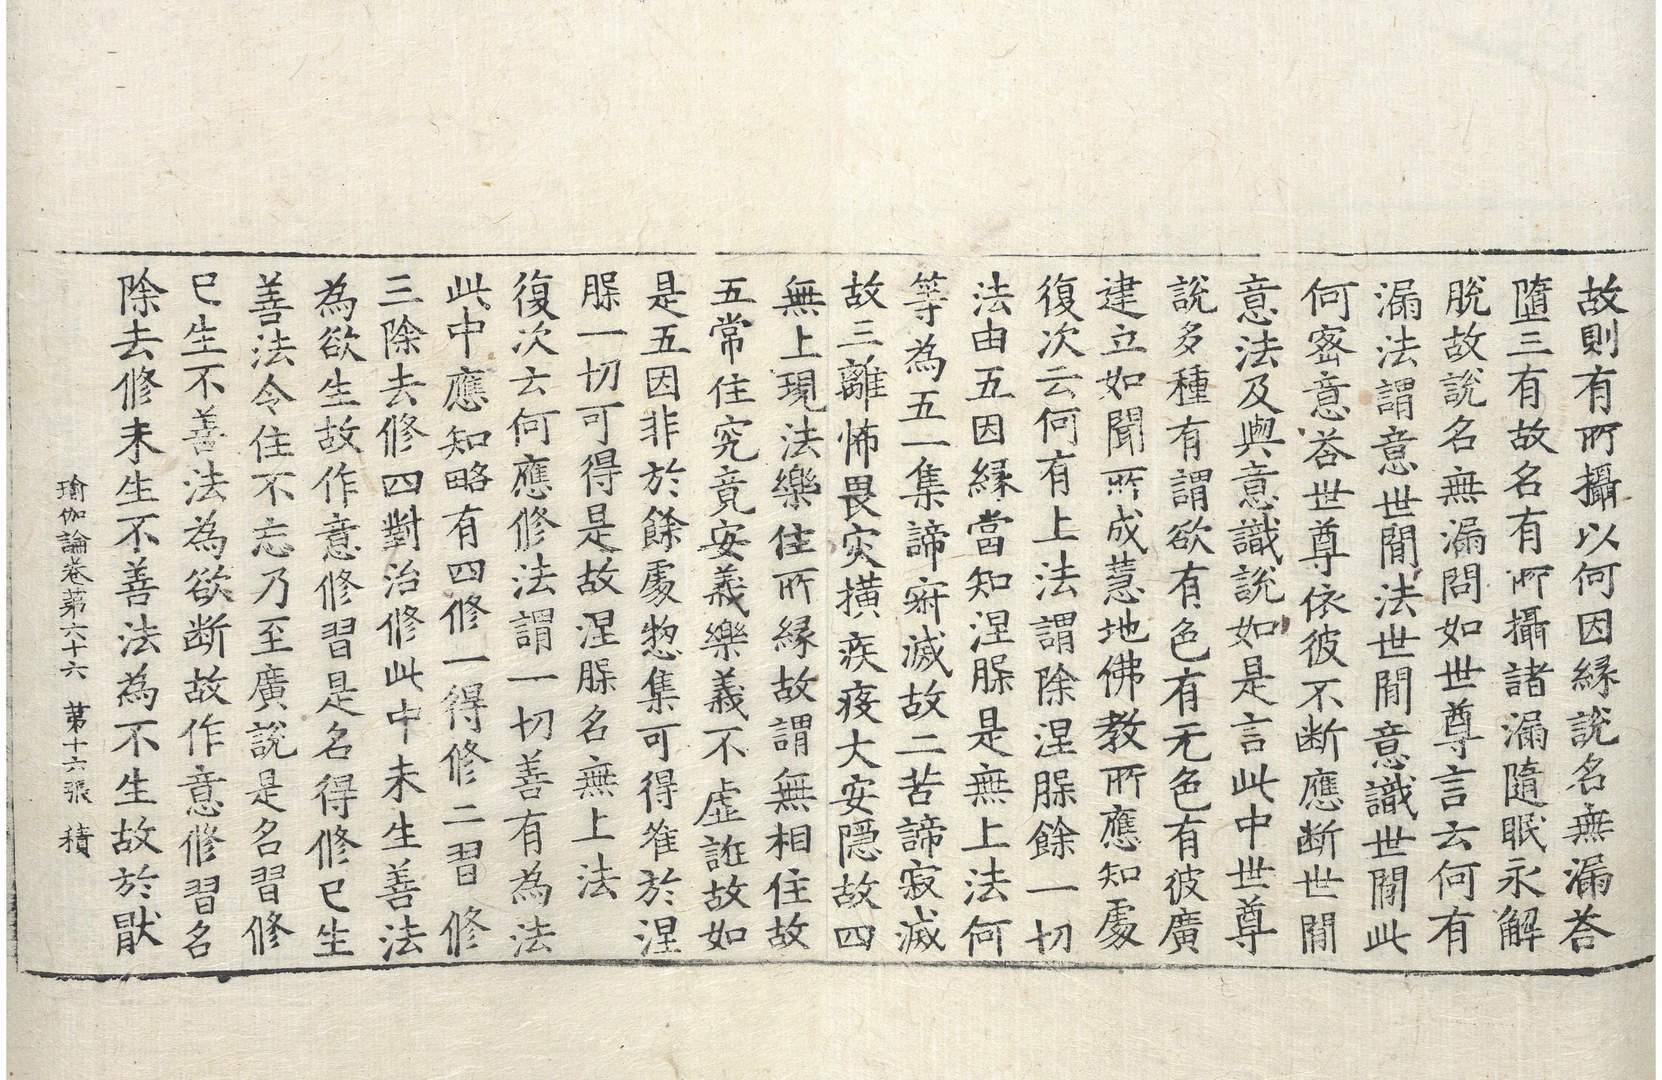 故則有所攝以何因縁說名無漏荅
墮三有故名有所攝諸漏隨眠永解
脫故說名無漏問如世尊言云何有
漏法謂意世間法世間意識世間此
何密意荅世尊依彼不断應断世間
意法及與意識說如是言此中世尊
說多種有謂欲有色有无色有彼廣
建立如聞所成慧地佛教所應知處
復次云何有上法謂除涅槃餘一切
法由五因緣當知涅槃是無上法何
等為五一集諦寂滅故二苦諦寂滅
故三離怖畏灾橫疾疫大安隱故四
無上現法樂住所緣故謂無相住故
五常住究竟安義樂義不虛誑故如
是五因非於餘處揔集可得唯於涅
槃一切可得是故涅槃名無上法
復次云何應修法謂一切善有為法
此中應知略有四修一得修二習修
三除去修四對治修此中未生善法
為欲生故作意修習是名得修已生
善法令住不忘乃至廣說是名習修
已生不善法為欲断故作意修習名
除去修未生不善法為不生故於猒
瑜伽論卷第六十六 第十六張 積